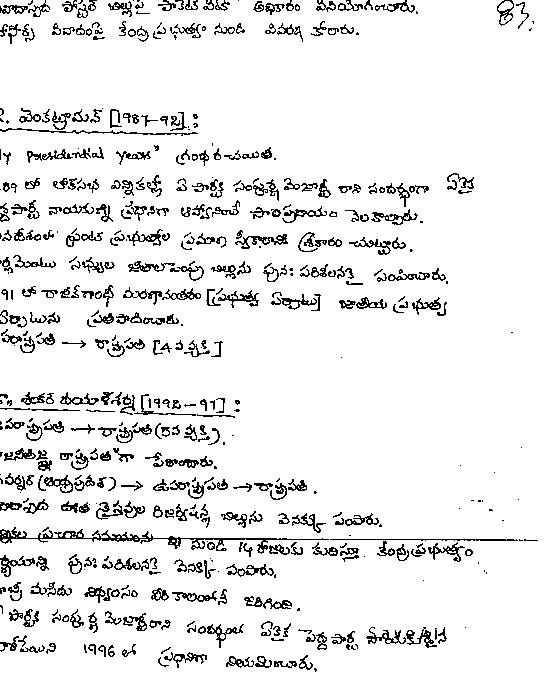 వాదాస్పద పోస్టల్ బిల్లుపై పాకెట్ వీటో అధికారం వినియోగించారు.
83.
వివాదంపై కేంద్రప్రభుత్వం నుండి వివరణ కోరారు.
వెంకట్రామన్ [1987-92] :
My Presidential Years" గ్రంథ రచయిత.
లో లోక్‌సభ ఎన్నికల్లో ఏ పార్టీకి సంపూర్ణ మెజార్టీ రాని సందర్భంగా ఏకైక
పార్టీ నాయకున్ని ప్రధానిగా ఆహ్వానించే సాంప్రదాయం నెలకొల్పారు.
దేశంలో ఫ్రంట్ ప్రభుత్వాల ప్రమాణ స్వీకారానికి శ్రీకారం చుట్టారు.
పార్లమెంటు సభ్యుల జీతాల పెంపు బిల్లును పునః పరిశీలనకై పంపించారు.
91 లో రాజీవ్‌గాంధీ మరణానంతరం [ప్రభుత్వ ఏర్పాటు] జాతీయ ప్రభుత్వ
ఏర్పాటును ప్రతిపాదించారు.
ఉపరాష్ట్రపతి → రాష్ట్రపతి [4వ వ్యక్తి]
శంకర్ దయాళ్‌శర్మ [1992-97] :
ఉపరాష్ట్రపతి → రాష్ట్రపతి (వ వ్యక్తి).
రాష్ట్రపతి"గా పేరొందారు.
గవర్నర్ (ఆంధ్రప్రదేశ్) → ఉపరాష్ట్రపతి → రాష్ట్రపతి.
దళిత క్రైస్తవుల రిజర్వేషన్ల బిల్లును వెనక్కు పంపారు.
ప్రచార సమయమును నుండి 14 రోజులకు కుదిస్తూ కేంద్రప్రభుత్వం
నిర్ణయాన్ని పునః పరిశీలనకై వెనక్కి పంపారు.
బాబ్రీ మసీదు విధ్వంసం వీరి కాలంలోనే జరిగింది.
పార్టీకి సంపూర్ణ మెజార్టీ రాని సందర్భంలో ఏకైక పెద్ద పార్టీ నాయకుడైన
వాజ్‌పేయిని 1996 లో ప్రధానిగా నియమించారు.